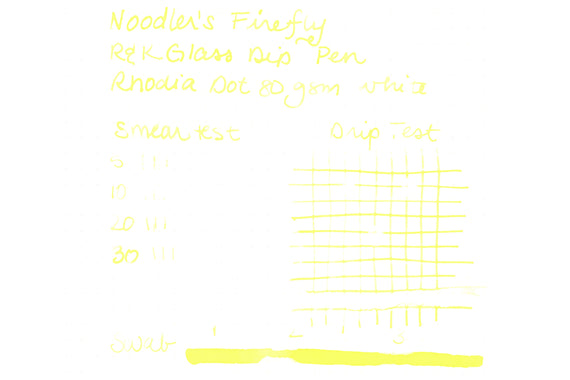 Noodler's Firefly
R&K Glass Dip Pen
Rhodia Dot 80 gsm white
Smear test Drip Test
5
10
20
30
1 2 3
Swab